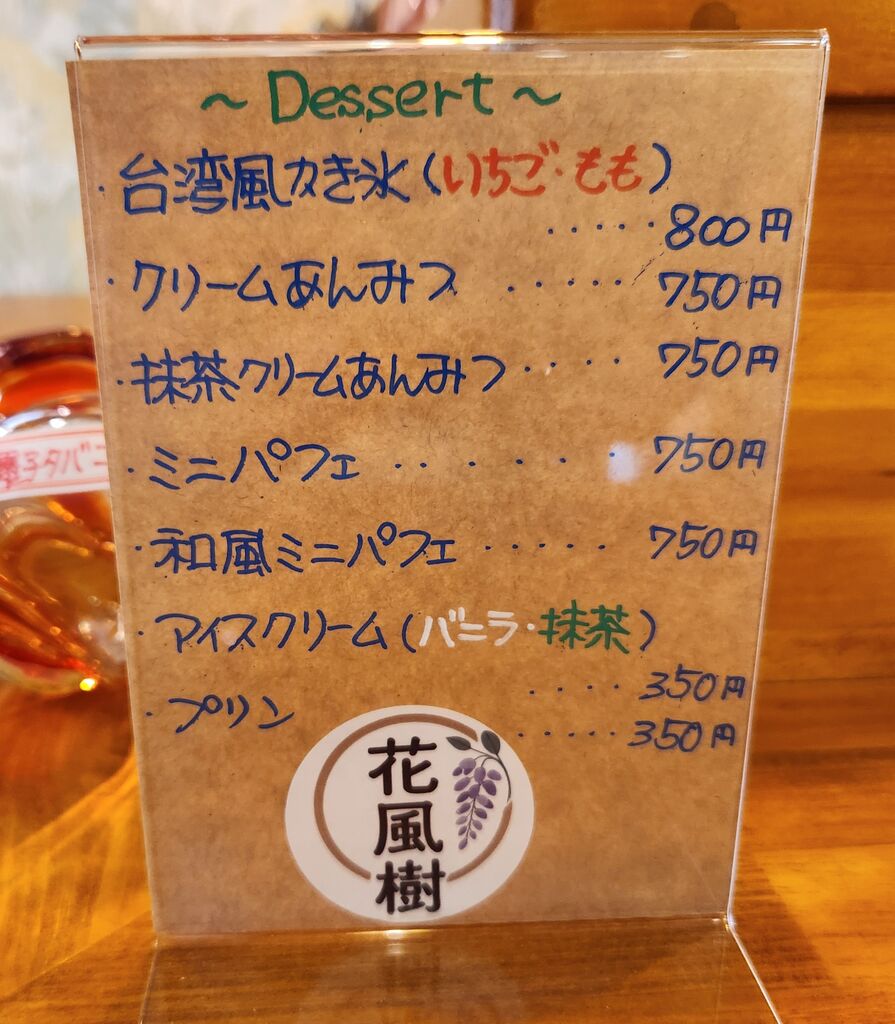 ~ Dessert ~
・台湾風かき氷（いちご・もも）
・・・・・800円
・クリームあんみつ ・・・・・ 750円
・抹茶クリームあんみつ・・・・ 750円
・ミニパフェ ・・・・・ 750円
・和風ミニパフェ ・・・・・ 750円
・アイスクリーム（バニラ・抹茶）
・・・・ 350円
・プリン ・・・・・ 350円
花風樹